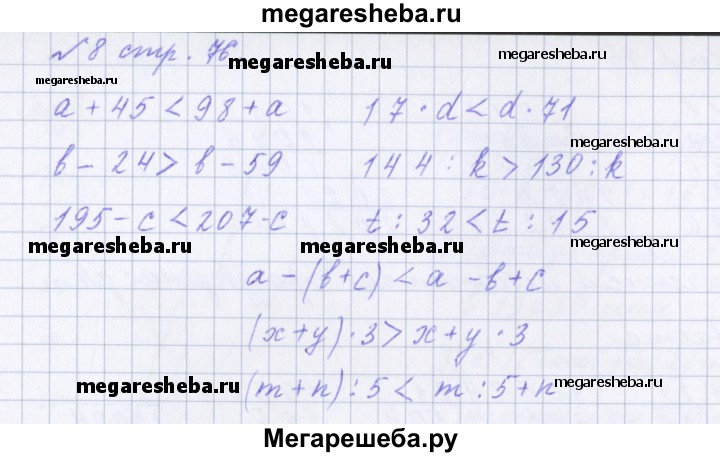 megaresheba.ru
№ 8 стр. 76
megaresheba.ru
megaresheba.ru
megaresheba.ru
a + 45 < 98 + a 17 · d < d · 71
megaresheba.ru
b - 24 > b - 59 144 : k > 130 : k
195 - c < 207 - c t : 32 < t : 15
megaresheba.ru megaresheba.ru megaresheba.ru
a - (b + c) < a - b + c
(x + y) · 3 > x + y · 3
megaresheba.ru (m + n) : 5 < m : 5 + n megaresheba.ru
Мегарешеба.ру